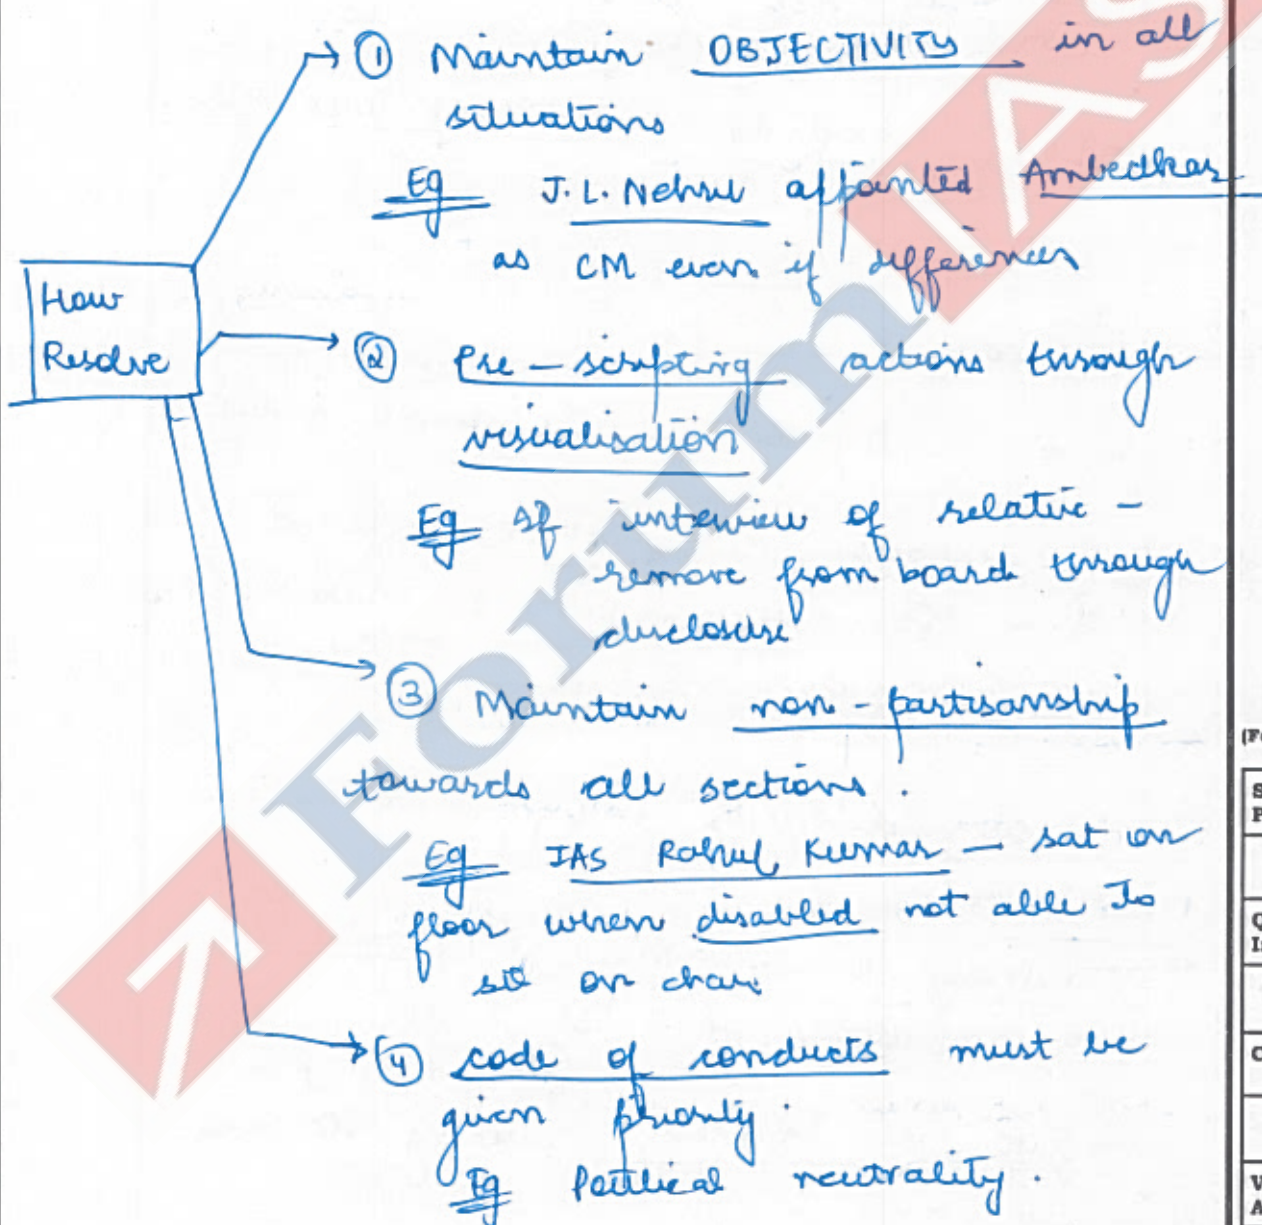 ① Maintain OBJECTIVITY in all
situations
Eg J.L. Nehru appointed Ambedkar
as CM even if differences
How
Resolve
② Pre-scripting actions through
visualisation
Eg If interview of relative -
remove from board through
disclosure
③ Maintain non-partisanship
towards all sections.
Eg IAS Rahul Kumar - sat on
floor when disabled not able to
sit on chair
④ code of conducts must be
given priority.
Eg Political neutrality.
Forum IAS